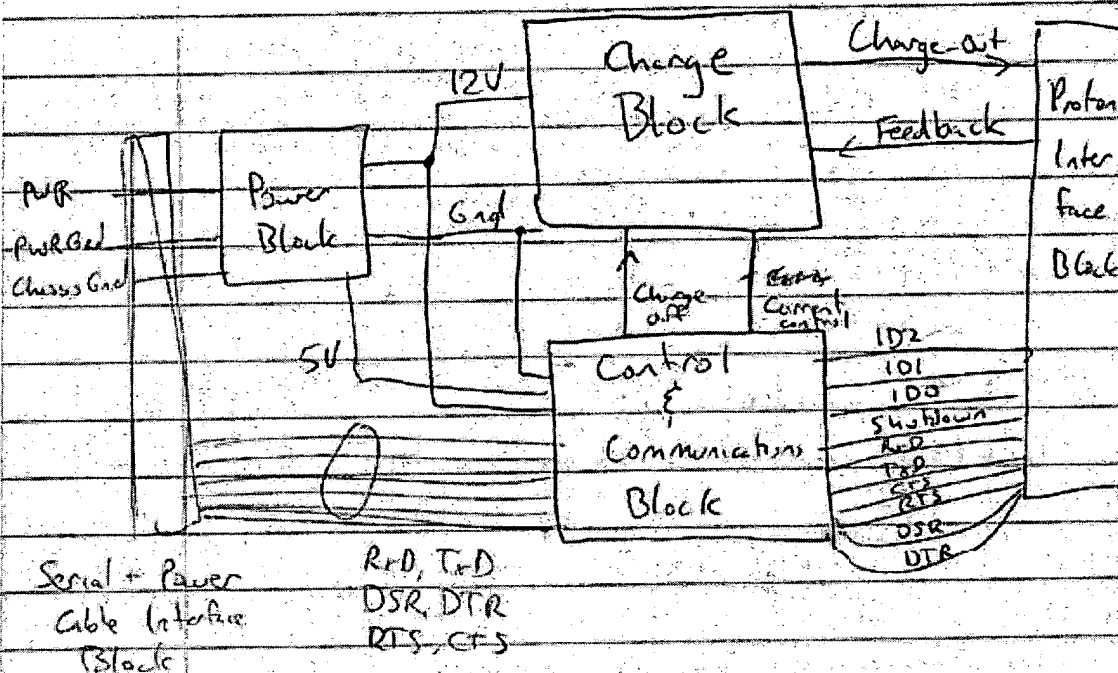 Charge
Block
Charge-out
Feedback
Proton
Inter
face
Block
12V
PWR
PWRGnd
Chassis Gnd
Power
Block
Gnd
5V
Charge
off
Current
control
Control
&
Communications
Block
ID2
ID1
ID0
Shutdown
RxD
TxD
CTS
RTS
DSR
DTR
Serial + Power
Cable Interface
Block
RxD, TxD
DSR, DTR
RTS, CTS